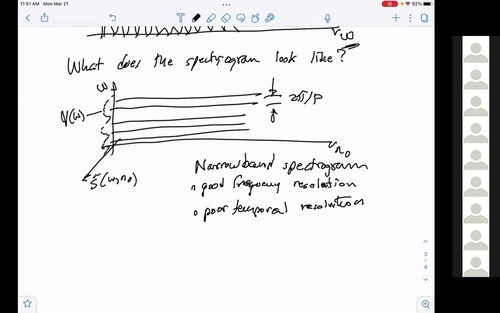 11:51 AM Mon Mar 21
92%
ω
What does the spectrogram look like?
ω
2π/P
V(ω)
n₀
S(ω,n₀)
Narrowband spectrogram
good frequency resolution
poor temporal resolution
3
4